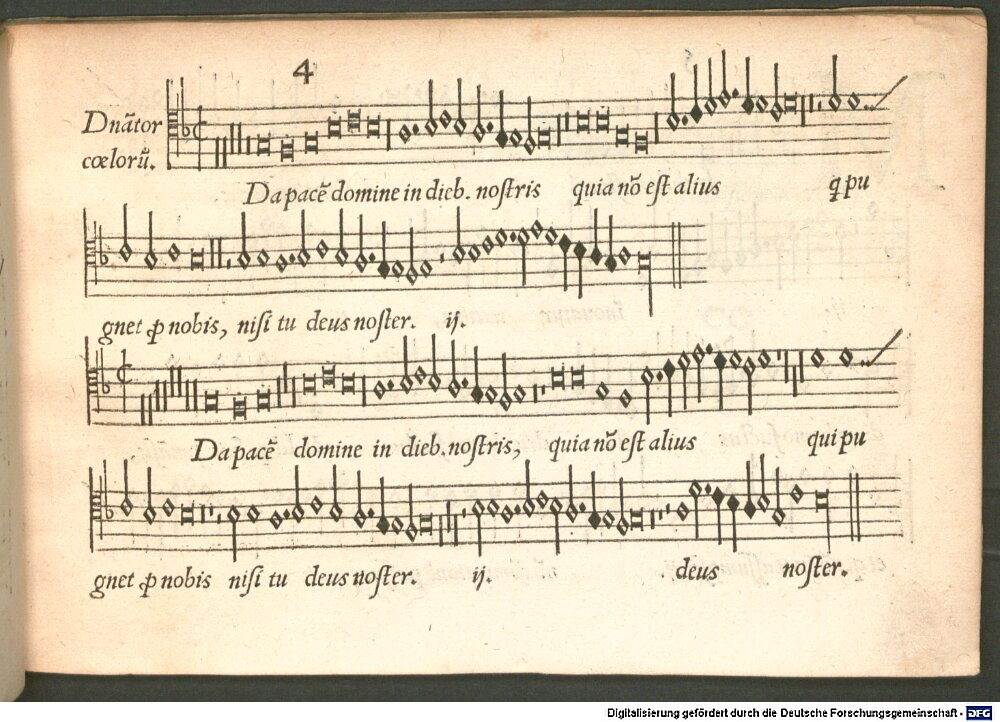 4
Dnātor
cœlorū.
Da pacē domine in dieb. nostris quia nō est alius q pu
gnet ꝓ nobis, nisi tu deus noster. ij.
Da pacē domine in dieb. nostris, quia nō est alius qui pu
gnet ꝓ nobis nisi tu deus noster. ij. deus noster.
Digitalisierung gefördert durch die Deutsche Forschungsgemeinschaft - DFG